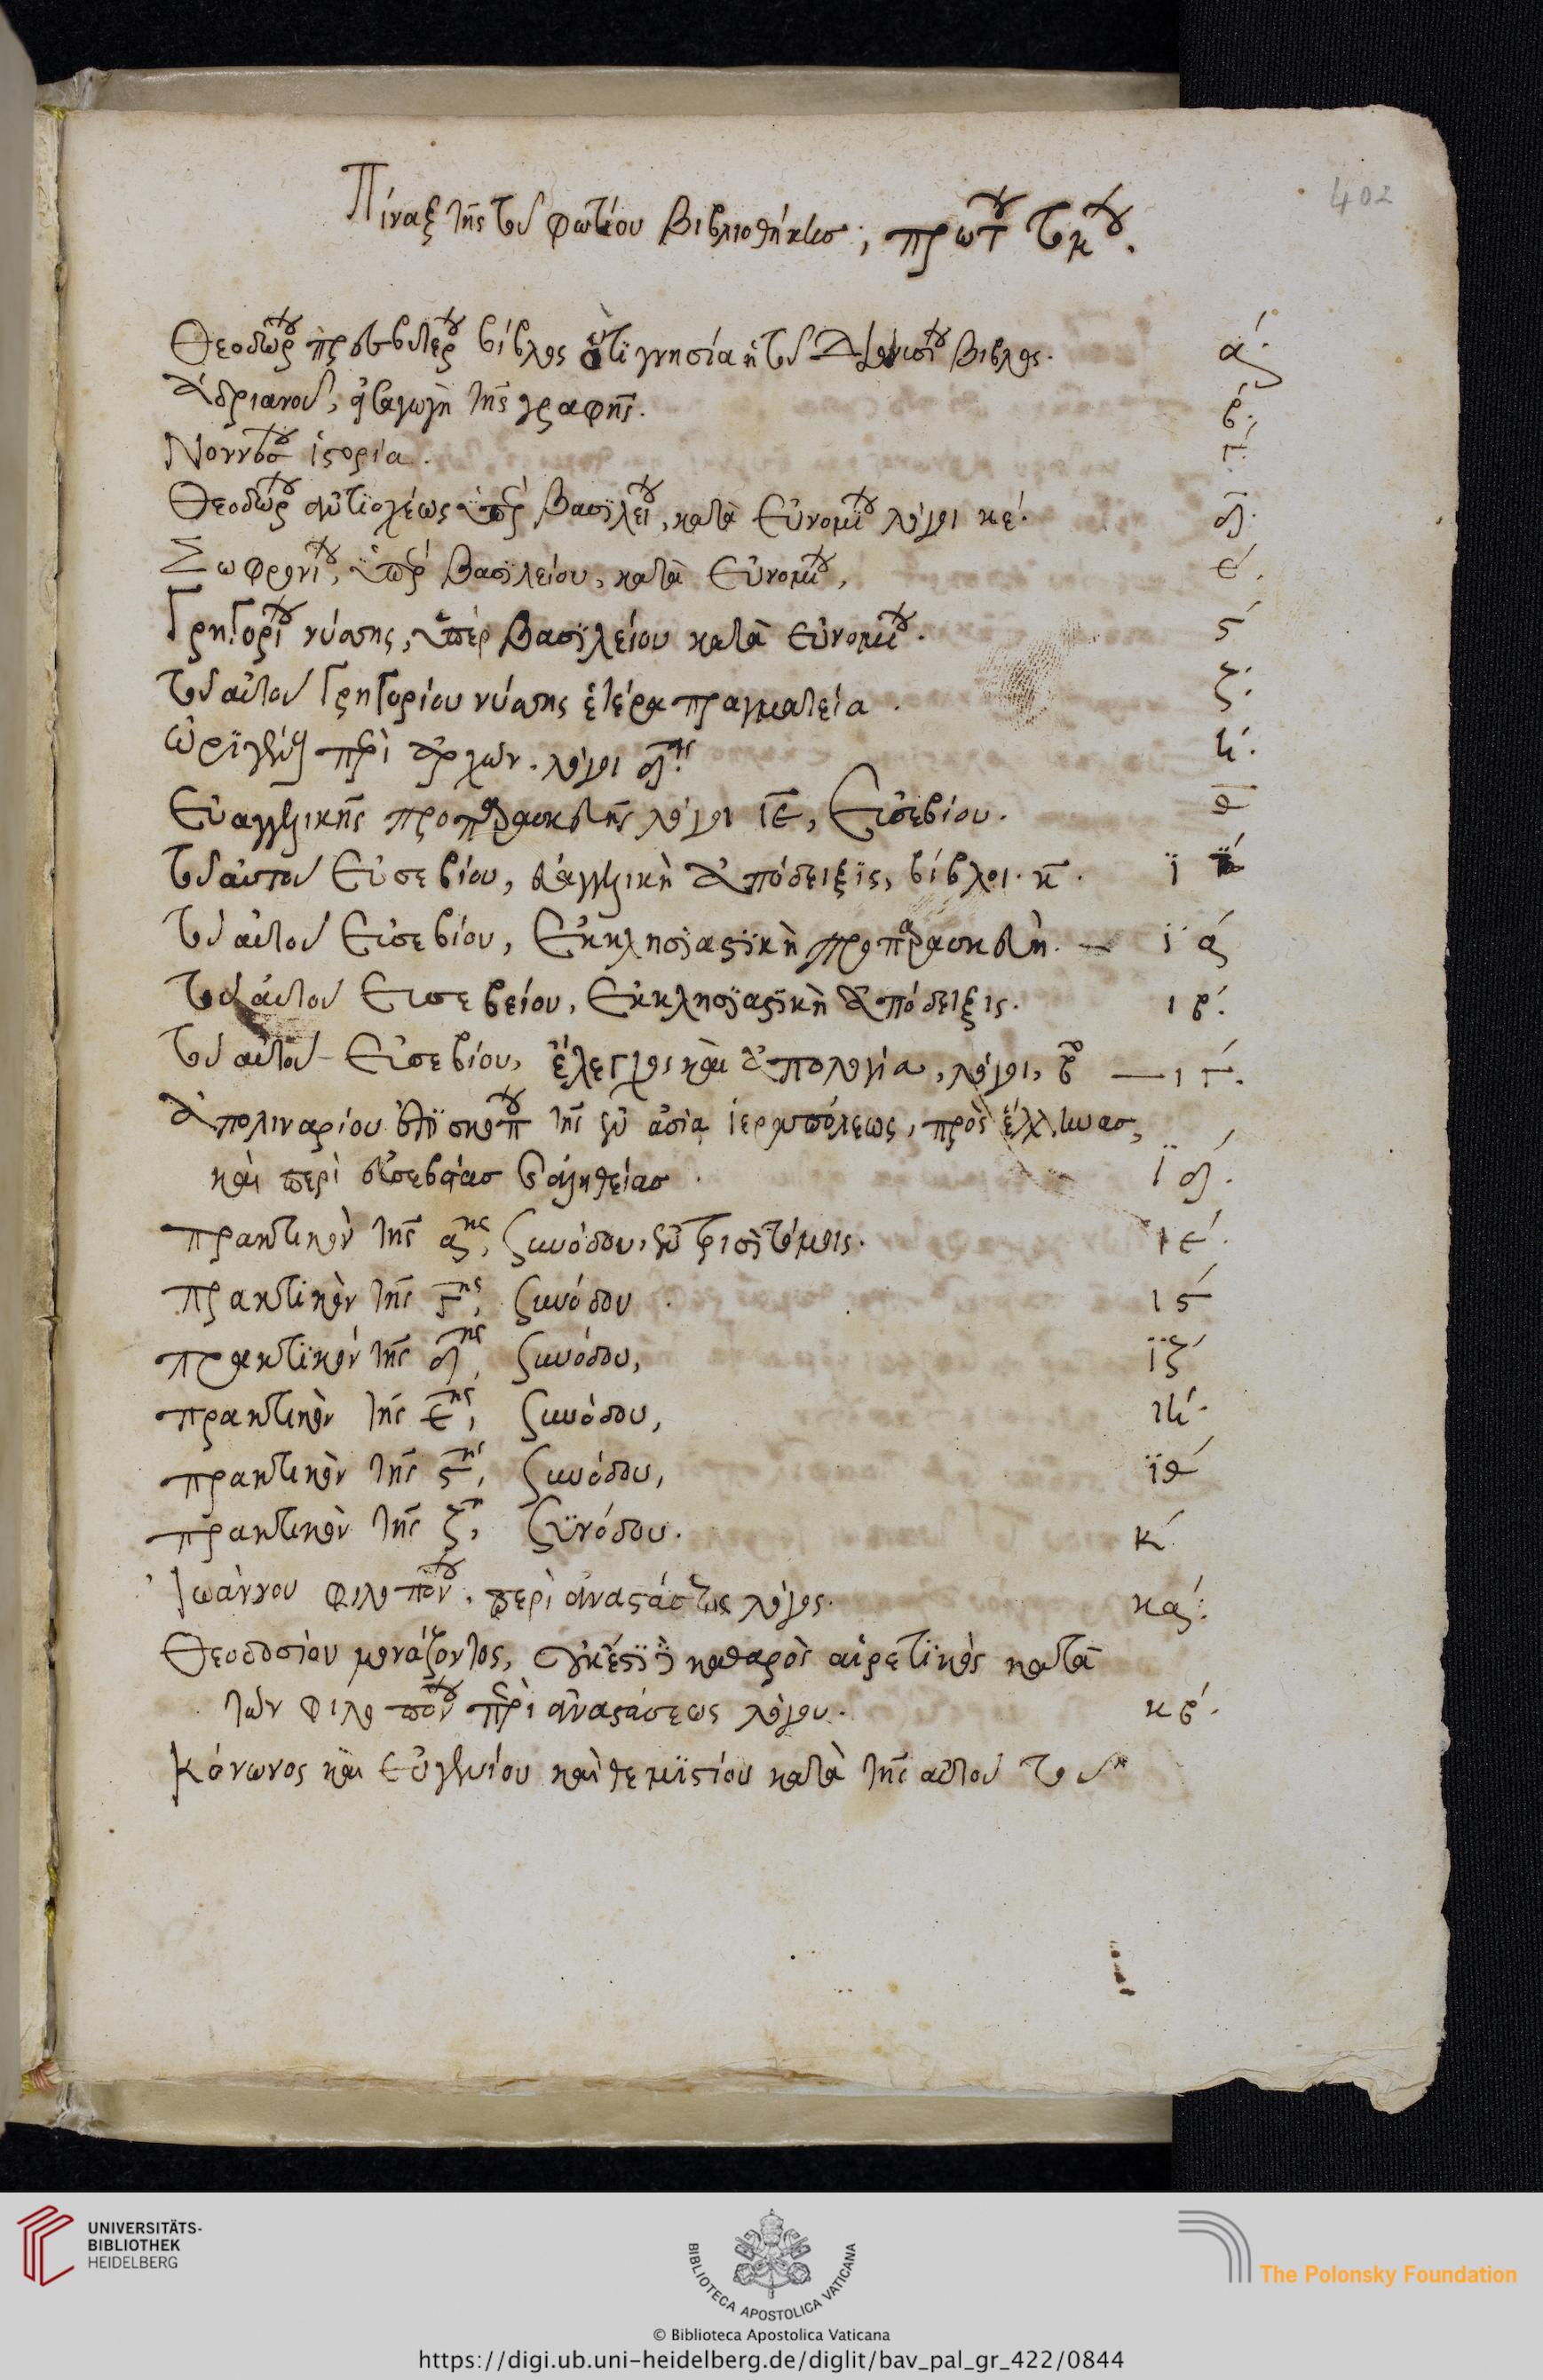 402
Πίναξ τῆς τοῦ φωτίου Βιβλιοθήκησ, πρώτ του
Θεοδώρου πρεσβυτέρου βίβλος ὅτι γνησία ἡ τοῦ Διονυσίου Βίβλος. α΄.
Ἀδριανοῦ, εἰσαγωγὴ τῆς γραφῆς. β΄.
Νοννόσου ἱστορία. γ΄.
Θεοδώρου ἀντιοχέως ὑπὲρ Βασιλείου, κατὰ Εὐνομίου λόγοι κε΄. δ΄.
Σωφρονίου, ὑπὲρ Βασιλείου, κατὰ Εὐνομίου, ε΄.
Γρηγορίου νύσσης, ὑπὲρ Βασιλείου κατὰ εὐνομίου. ς΄
τοῦ αὐτοῦ Γρηγορίου νύσσης ἑτέρα πραγματεία. ζ΄.
ὠριγένους περὶ ἀρχῶν. λόγοι δ΄. η΄.
Εὐαγγελικῆς προπαρασκευῆς λόγοι ιε, Εὐσεβίου. θ
τοῦ αὐτοῦ Εὐσεβίου, εὐαγγελικὴ ἀπόδειξις, βίβλοι. κ. ϊ
τοῦ αὐτοῦ Εὐσεβίου, Ἐκκλησιαστικὴ προπαρασκευὴ. ϊα΄
τοῦ αὐτοῦ Εὐσεβείου, Ἐκκλησιαστικὴ ἀπόδειξις. ιβ΄.
τοῦ αὐτοῦ Εὐσεβίου, ἔλεγχος καὶ ἀπολογία, λόγοι, β ιγ΄.
Ἀπολιναρίου ἐπισκόπου τῆς ἐν ἀσία ἱεραπόλεως, πρὸς ἕλληνασ,
καὶ περὶ εὐσεβείασ καὶ ἀληθείασ. ϊδ΄.
πρακτικὸν τῆς αης, συνόδου, ἐν τρισὶ τόμοις. ιε΄.
πρακτικὸν τῆς γης, συνόδου. ις΄
πρακτικὸν τῆς δης, συνόδου, ϊζ΄
πρακτικὸν τῆς εης, συνόδου, ιη΄.
πρακτικὸν τῆς ςης, συνόδου, ϊθ΄
πρακτικὸν τῆς ζη, συνόδου. κ΄
Ἰωάννου φιλοπόνου. περὶ ἀναστάσεως λόγος. κα΄.
Θεοδοσίου μονάζοντος, καθαρὸς αἱρετικὸς κατὰ
τῶν φιλοπόνου περὶ ἀναστάσεως λόγου. κβ΄.
Κόνωνος καὶ Εὐγενίου καὶ θεμιστίου κατὰ τῆς αὐτοῦ τοῦ
UNIVERSITÄTS-
BIBLIOTHEK
HEIDELBERG
BIBLIOTECA APOSTOLICA VATICANA
© Biblioteca Apostolica Vaticana
The Polonsky Foundation
https://digi.ub.uni-heidelberg.de/diglit/bav_pal_gr_422/0844